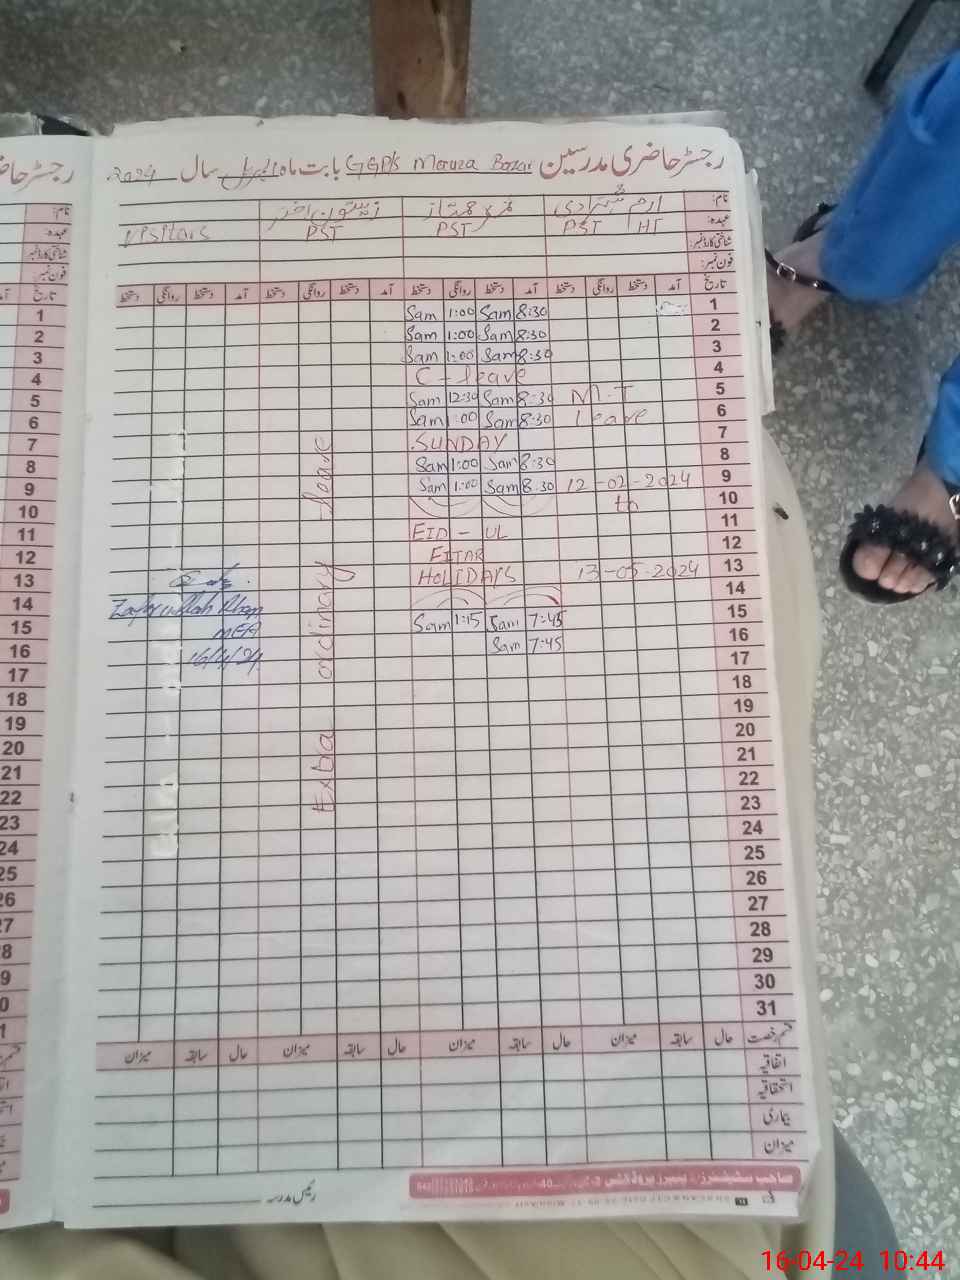 رجسٹر حاضری مدرسین GGP/s Maruza Bazar بابت ماہ اپریل سال 2024
نام: ارم شہزادی
عہدہ: PST HT PST PST Visitors
شناختی کارڈ نمبر:
فون نمبر:
تاریخ آمد دستخط روانگی دستخط آمد دستخط روانگی دستخط آمد دستخط روانگی دستخط آمد دستخط روانگی دستخط
1 8:30 Sam 1:00 Sam
2 8:30 Sam 1:00 Sam
3 8:30 Sam 1:00 Sam
4 C - leave
5 M.T 8:30 Sam 12:30 Sam
6 leave 8:30 Sam 1:00 Sam
7 SUNDAY
8 8:30 Sam 1:00 Sam
9 12-02-2024 8:30 Sam 1:00 Sam
10 to
11 EID - UL
12 FITAR
13 13-05-2024 HOLIDAYS
14
15 7:45 Sam 1:15 Sam
16 7:45 Sam
17
18
19
20
21
22
23
24
25
26
27
28
29
30
31
Extra ordinary leave
Zafar ullah Khan
MEA
16/4/24
قسم رخصت حال سابقہ میزان حال سابقہ میزان حال سابقہ میزان حال سابقہ میزان
اتفاقیہ
استحقاقیہ
بیماری
میزان
رئیس مدرسہ
16-04-24 10:44